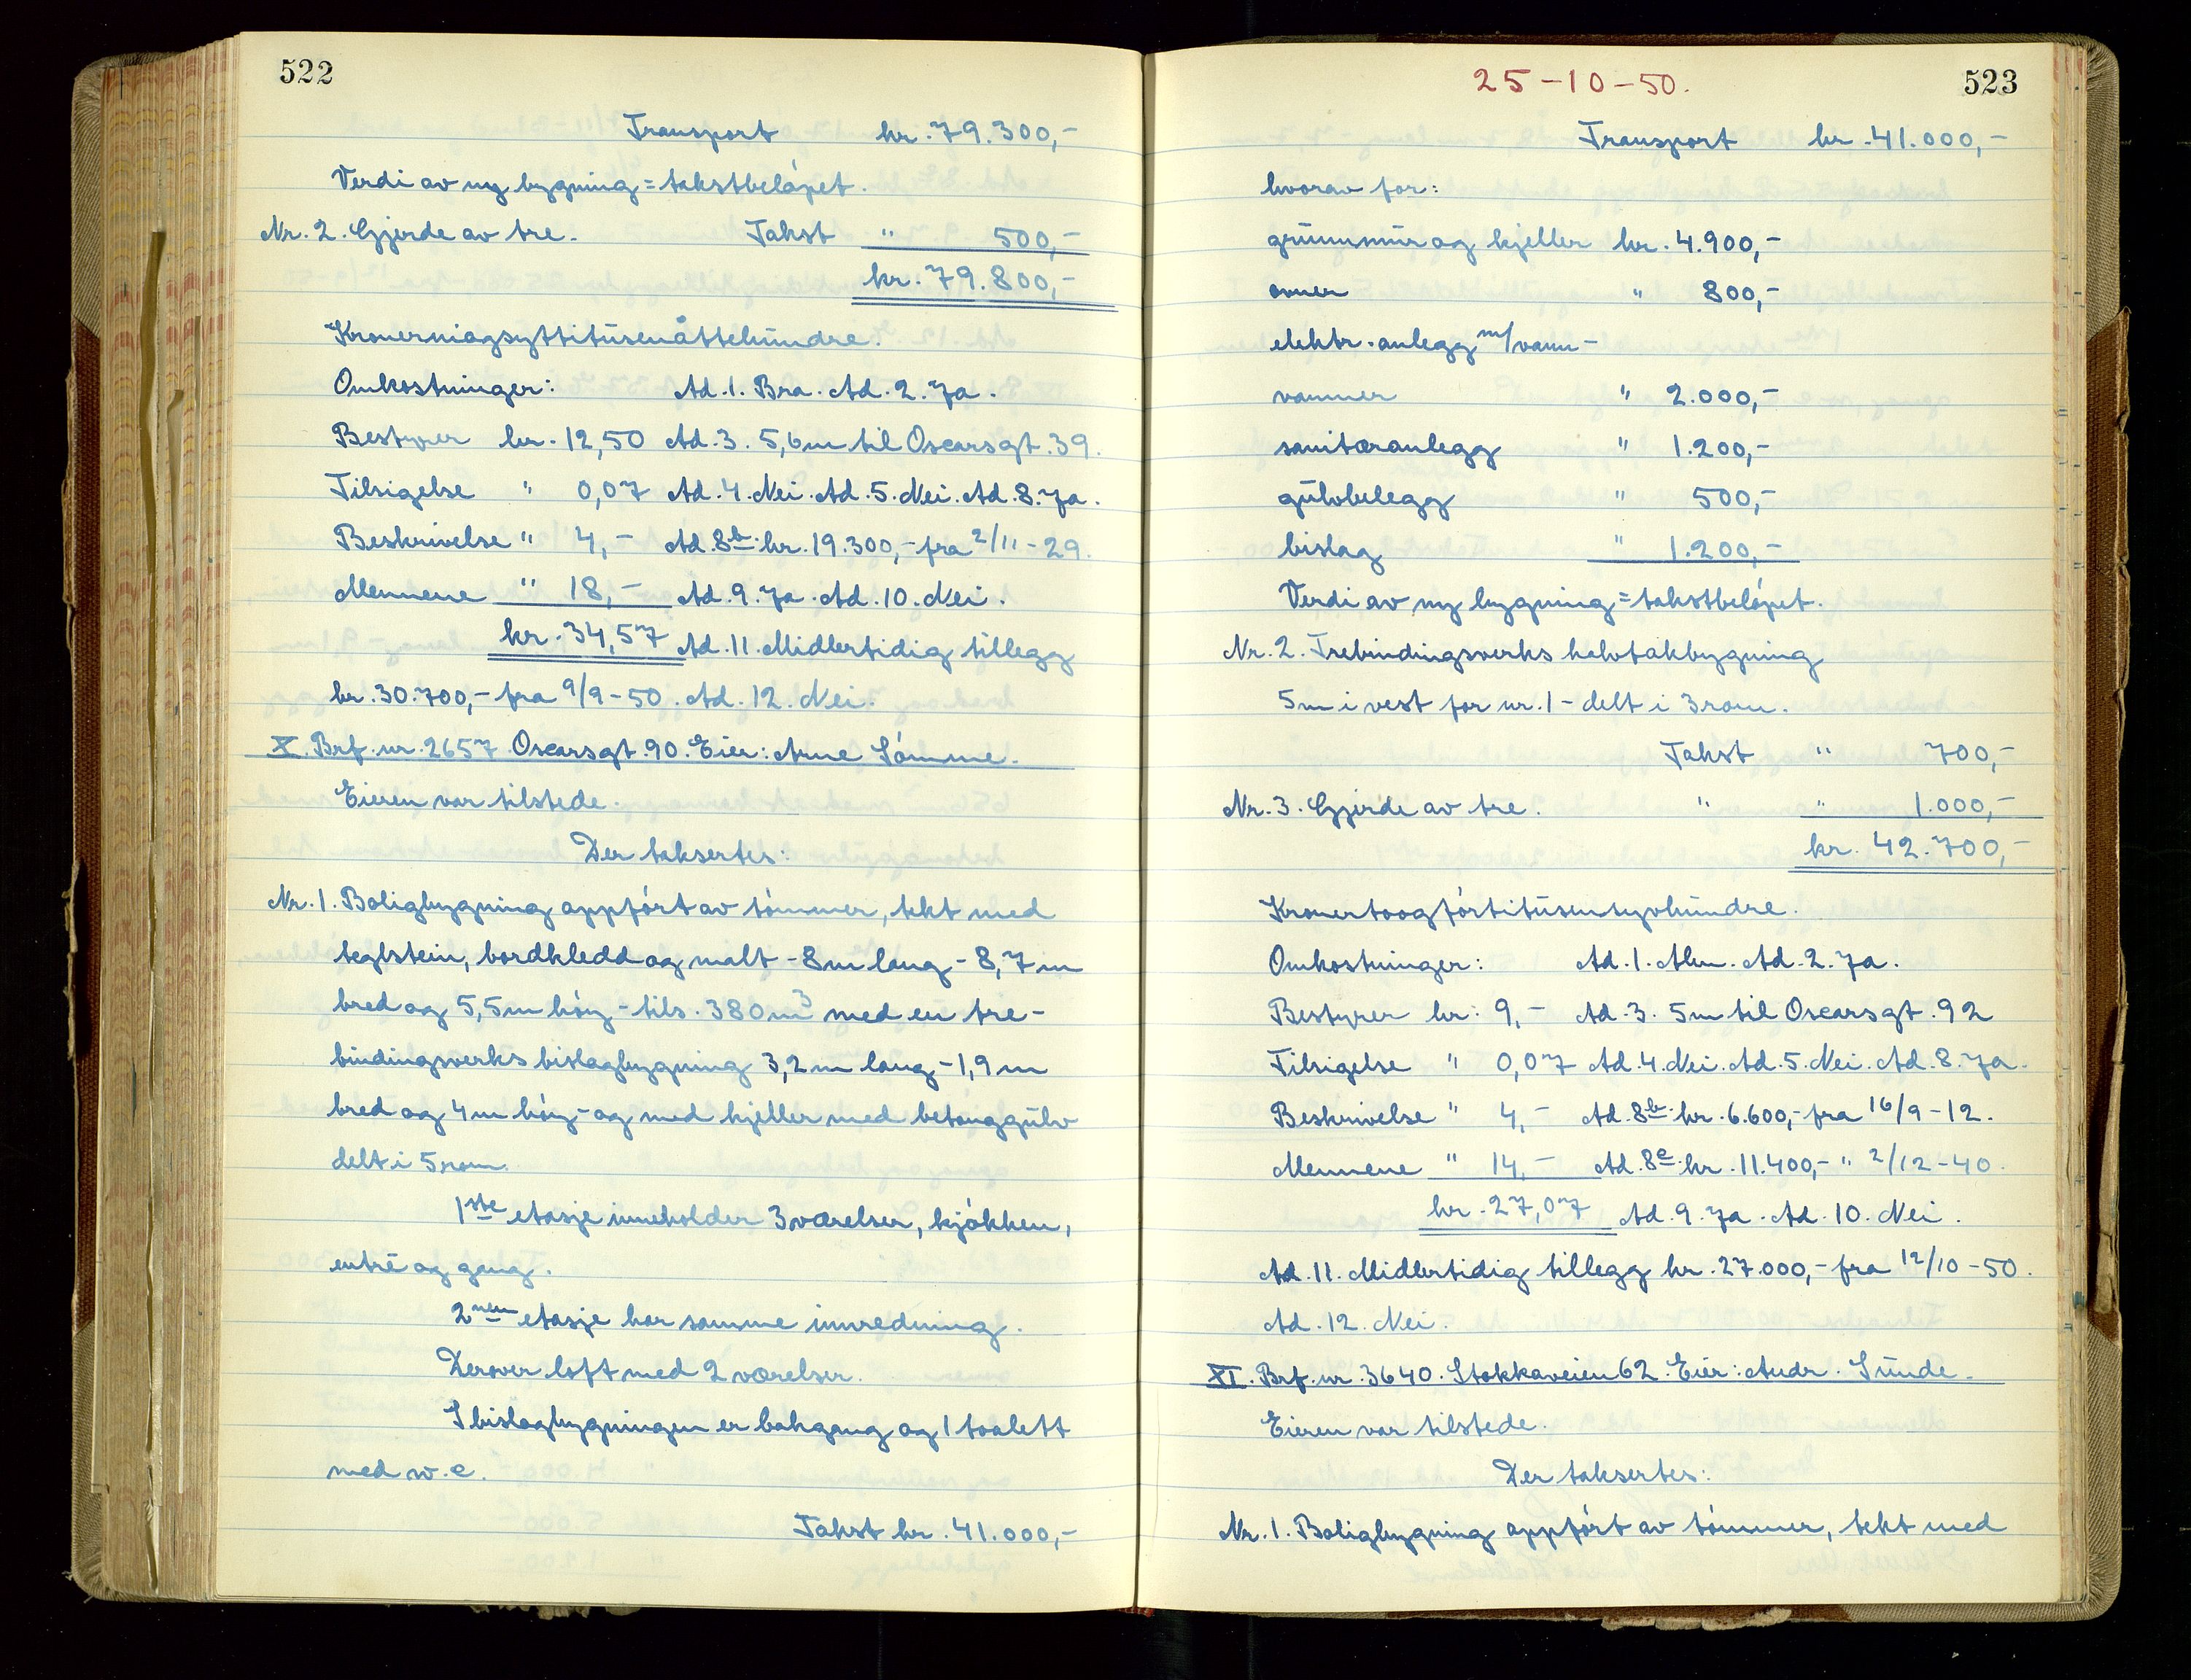 522
Transport kr. 79.300,-
Verdi av ny bygning = takstbeløpet.
Nr. 2. Gjerde av tre. Takst " 500,-
kr. 79.800,-
Kronerniogsyttitusenåttehundre.
Omkostninger: Ad. 1. Bra. Ad. 2. Ja.
Bestyrer kr. 12,50 Ad. 3. 5,6m til Oscarsgt. 39.
Tilsigelse " 0,07 Ad. 4. Nei. Ad. 5. Nei. Ad. 8. Ja.
Beskrivelse " 4,- Ad. 8b. kr. 19.300,- fra 2/11-29.
Mennene " 18,- Ad. 9. Ja. Ad. 10. Nei.
kr. 34,57 Ad. 11. Midlertidig tillegg
kr. 30.700,- fra 9/9-50. Ad. 12. Nei.
X. Brf. nr. 2657 Oscarsgt. 90. Eier: Arne Sømme.
Eieren var tilstede.
Der taksertes:
Nr. 1. Boligbygning oppført av tømmer, tekt med
teglstein, bordkledd og malt - 8m lang - 8,7m
bred og 5,5m høy - tils. 380m3 med en tre-
bindingsverks bislagbygning 3,2m lang - 1,9m
bred og 4m høy - og med kjeller med betonggulv
delt i 5 rom.
1ste etasje inneholder 3 værelser, kjøkken,
entré og gang.
2nen etasje har samme innredning.
Derover loft med 2 værelser.
I bislagbygningen er bakgang og 1 toalett
med w.c.
Takst kr. 41.000,-
25-10-50.
523
Transport kr. 41.000,-
hvorav for:
grunnmur og kjeller kr. 4.900,-
ovner " 800,-
elektr. anlegg m/vann-
varmer " 2.000,-
sanitæranlegg " 1.200,-
gulvbelegg " 500,-
bislag " 1.200,-
Verdi av ny bygning = takstbeløpet.
Nr. 2. Trebindingsverks halvtakbygning
5m i vest for nr. 1 - delt i 3 rom.
Takst " 700,-
Nr. 3. Gjerde av tre. " " 1.000,-
kr. 42.700,-
Kronertoogførtitusensyvhundre.
Omkostninger: Ad. 1. Alm. Ad. 2. Ja.
Bestyrer kr. 9,- Ad. 3. 5m til Oscarsgt. 92
Tilsigelse " 0,07 Ad. 4. Nei. Ad. 5. Nei. Ad. 8. Ja.
Beskrivelse " 4,- Ad. 8b. kr. 6.600,- fra 16/9-12.
Mennene " 14,- Ad. 8c. kr. 11.400,- " 2/12-40.
kr. 27,07 Ad. 9. Ja. Ad. 10. Nei.
Ad. 11. Midlertidig tillegg kr. 27.000,- fra 12/10-50.
Ad. 12. Nei.
XI. Brf. nr. 3640. Stokkaveien 62. Eier: Andr. Sunde.
Eieren var tilstede.
Der taksertes:
Nr. 1. Boligbygning oppført av tømmer, tekt med